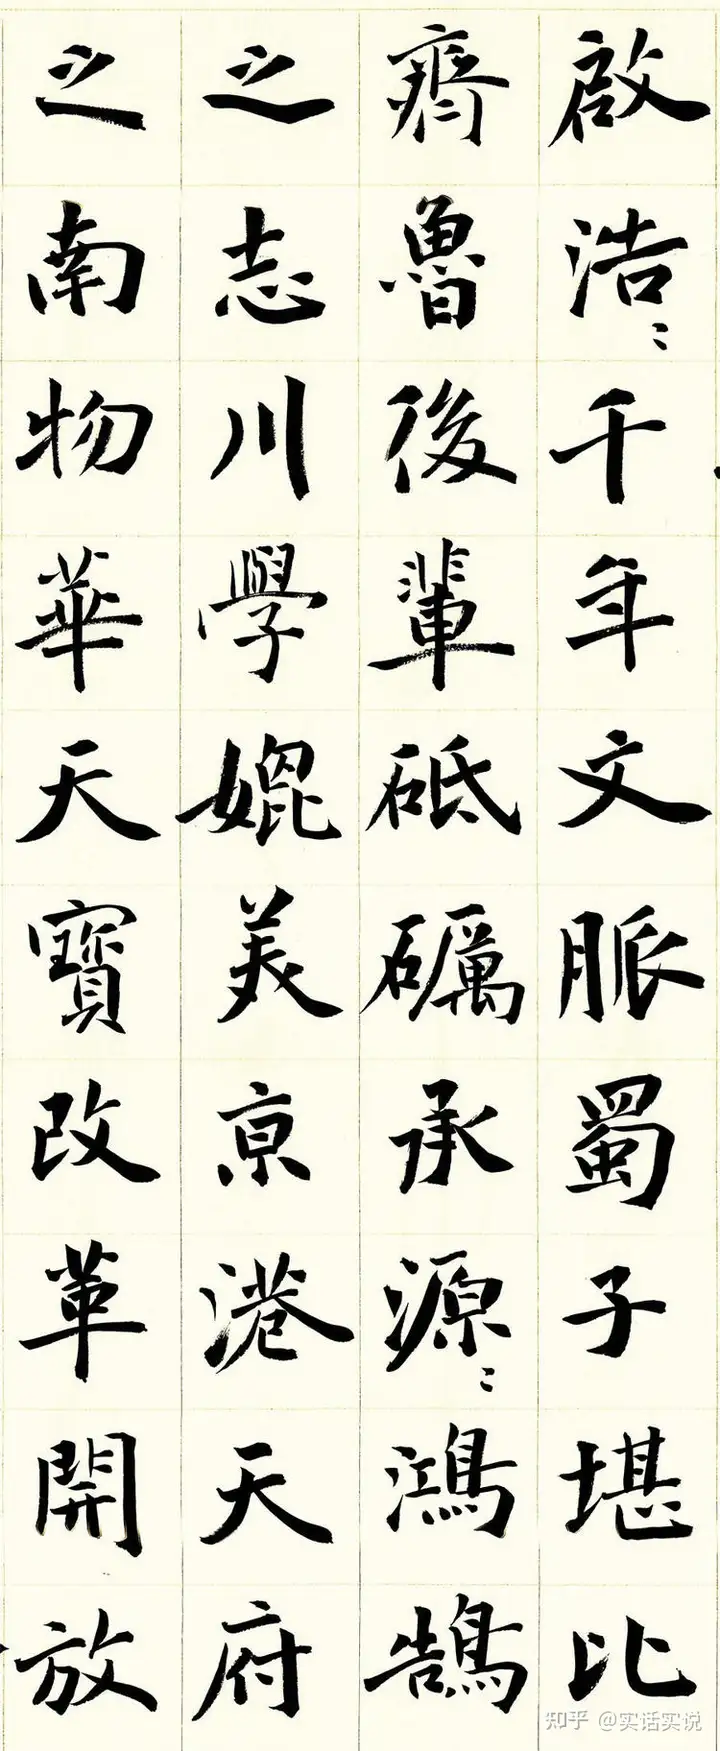 啟浩〻千年文脈蜀子堪比
齊魯後輩砥礪承源〻鴻鵠
之志川學媲美京港天府
之南物華天寶改革開放
知乎 @实话实说